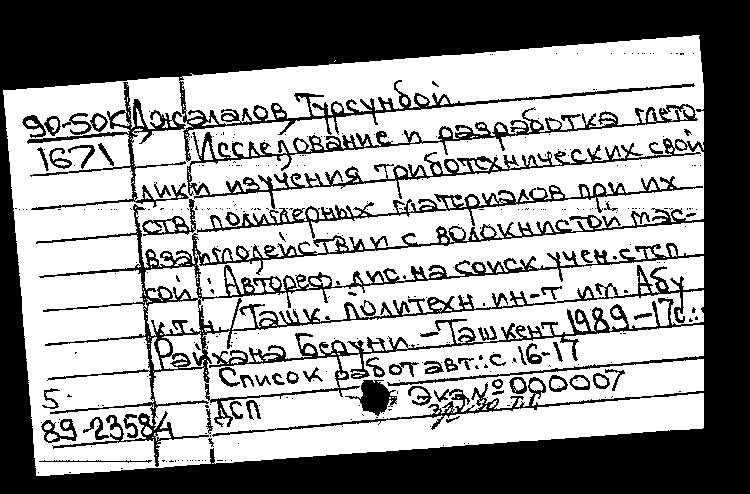 90-50К Джалалов Турсунбой.
1671 Исследование и разработка мето-
дики изучения триботехнических свой
ств полимерных материалов при их
взаимодействии с волокнистой мас-
сой : Автореф. дис. на соиск. учен. степ.
к.т.н. / Ташк. политехн. ин-т им. Абу
Райхана Беруни. - Ташкент, 1989. - 17с.:
Список работ авт.: с. 16-17
5. ДСП Экз № 000007
89-23584